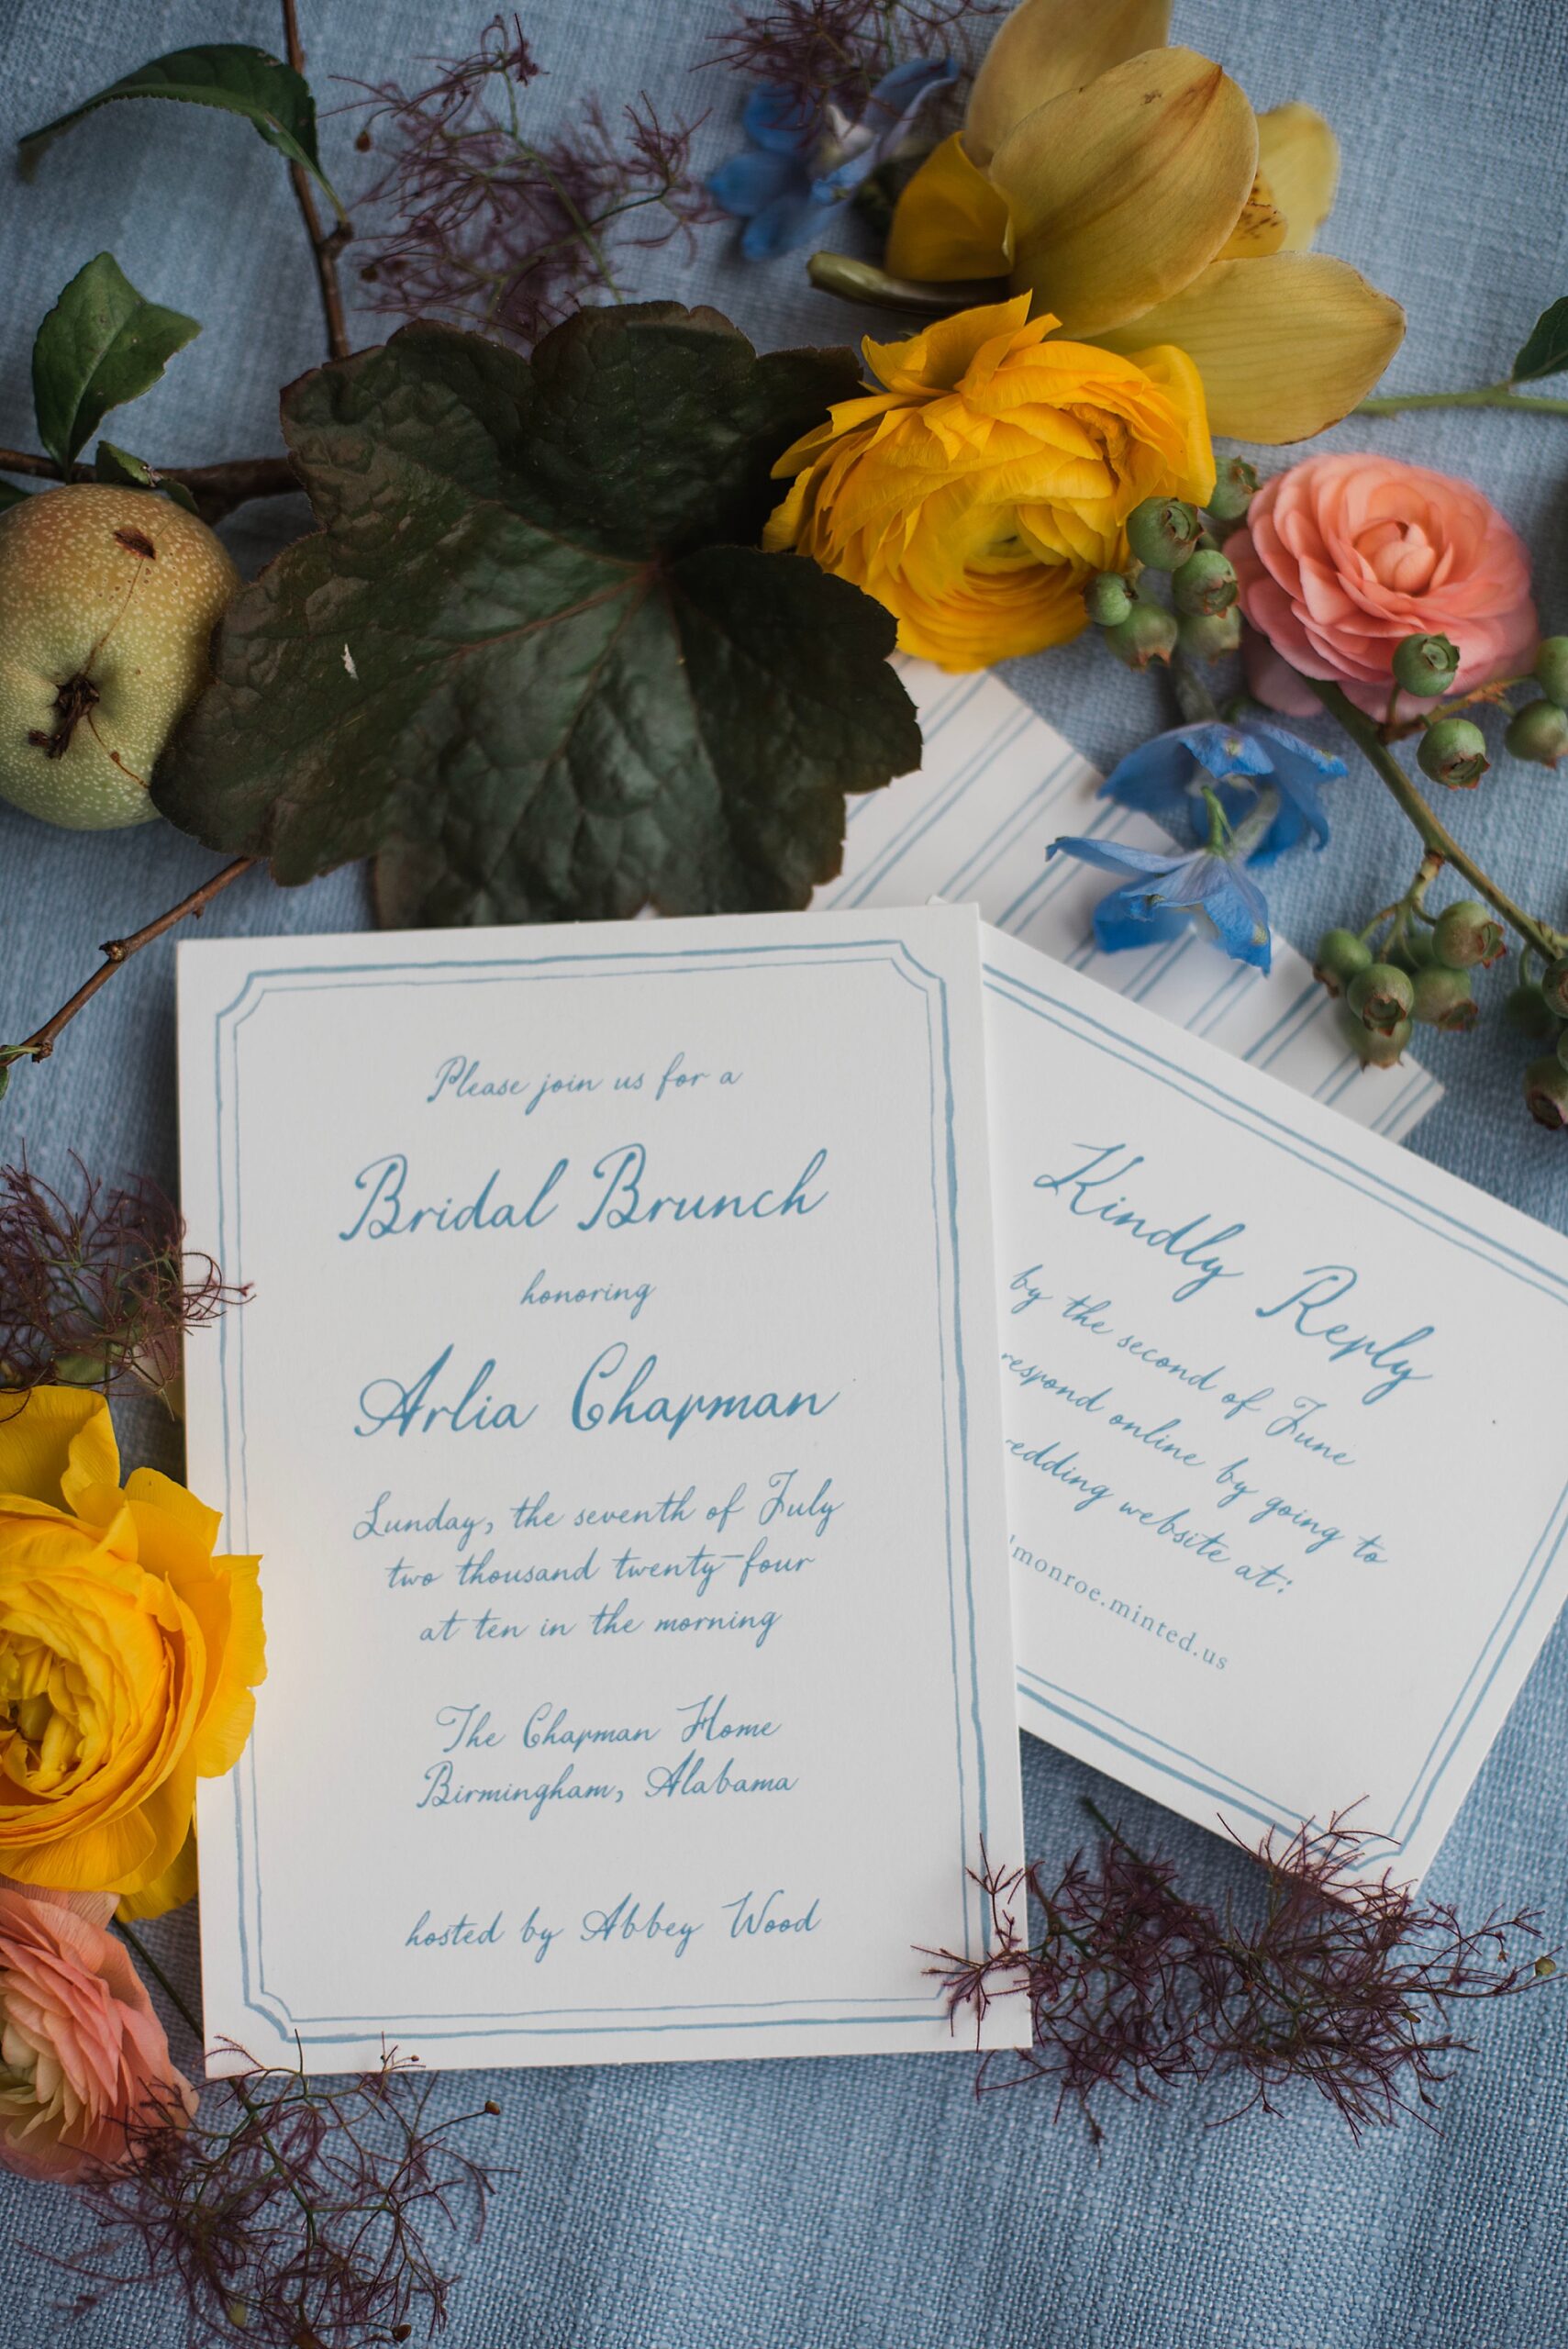 Please join us for a
Bridal Brunch
honoring
Arlia Chapman
Sunday, the seventh of July
two thousand twenty-four
at ten in the morning
The Chapman Home
Birmingham, Alabama
hosted by Abbey Wood
Kindly Reply
by the second of June
respond online by going to
website at:
monroe.minted.us